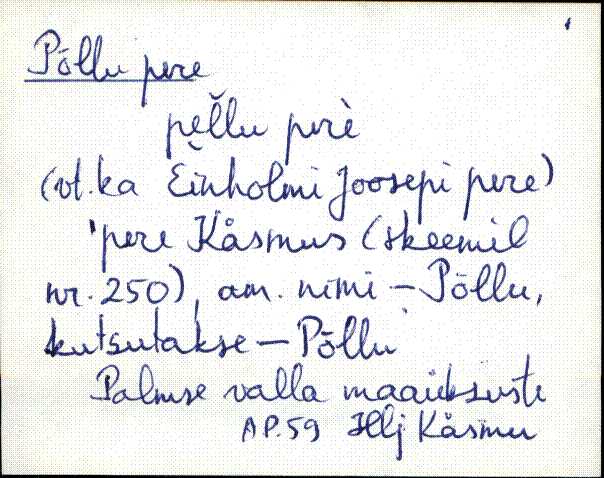 Põllu pere
pe̮llu perè
(vt. ka Einholmi Joosepi pere)
'pere Käsmus (skeemil
nr. 250), am. nimi – Põllu,
kutsutakse – Põllu'
Palmse valla maaüksuste
AP. 59 Hlj Käsmu